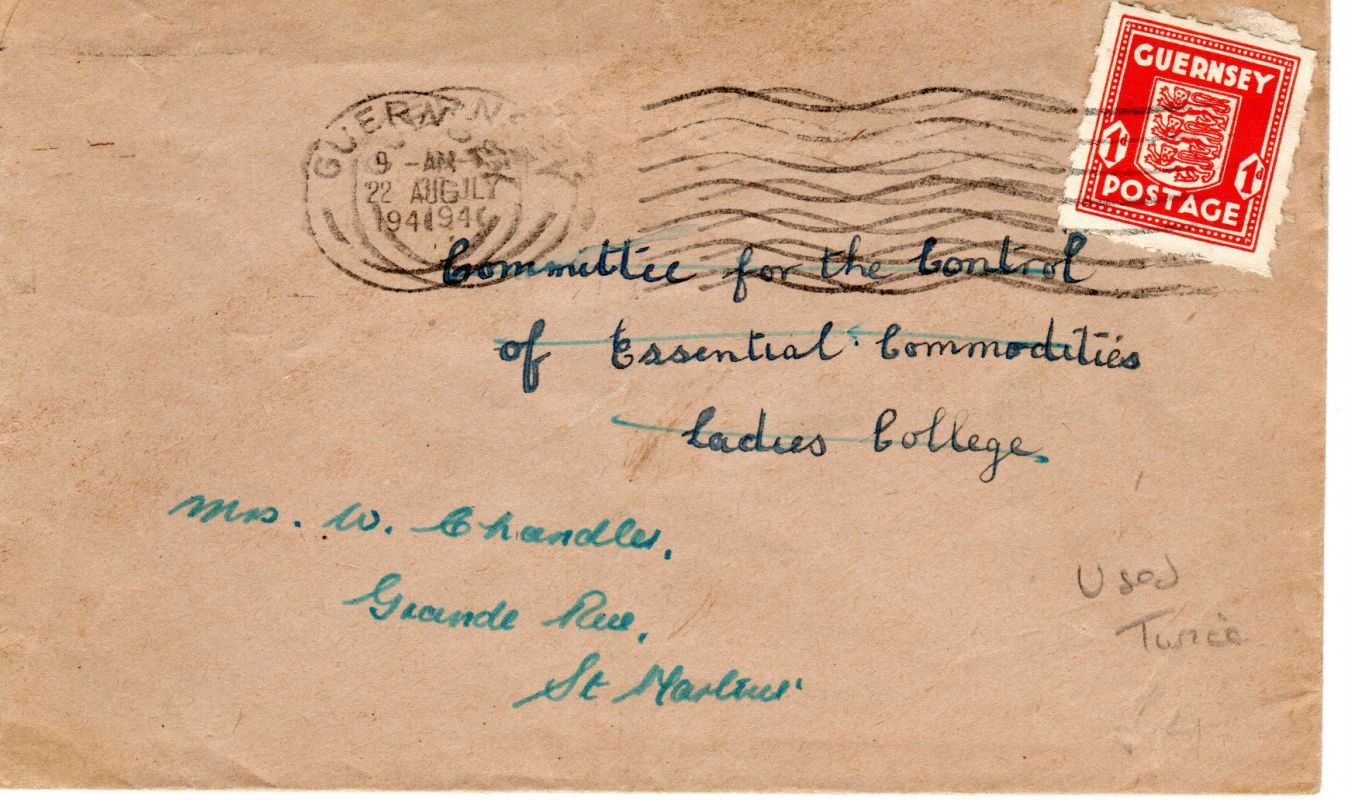 GUERNSEY
1d 1d
POSTAGE
GUERNSEY
9 - AM
22 AUG JLY
1941 194
Committee for the Control
of Essential Commodities
Ladies College.
Mrs. W. Chandler,
Grande Rue,
St Martins
Used
Twice